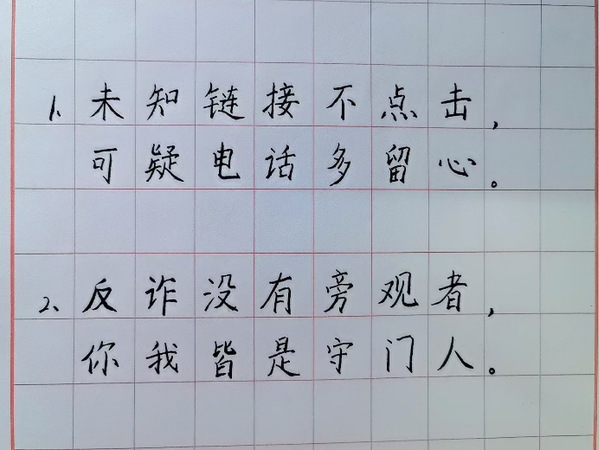 1、未知链接不点击,
可疑电话多留心。
2、反诈没有旁观者,
你我皆是守门人。